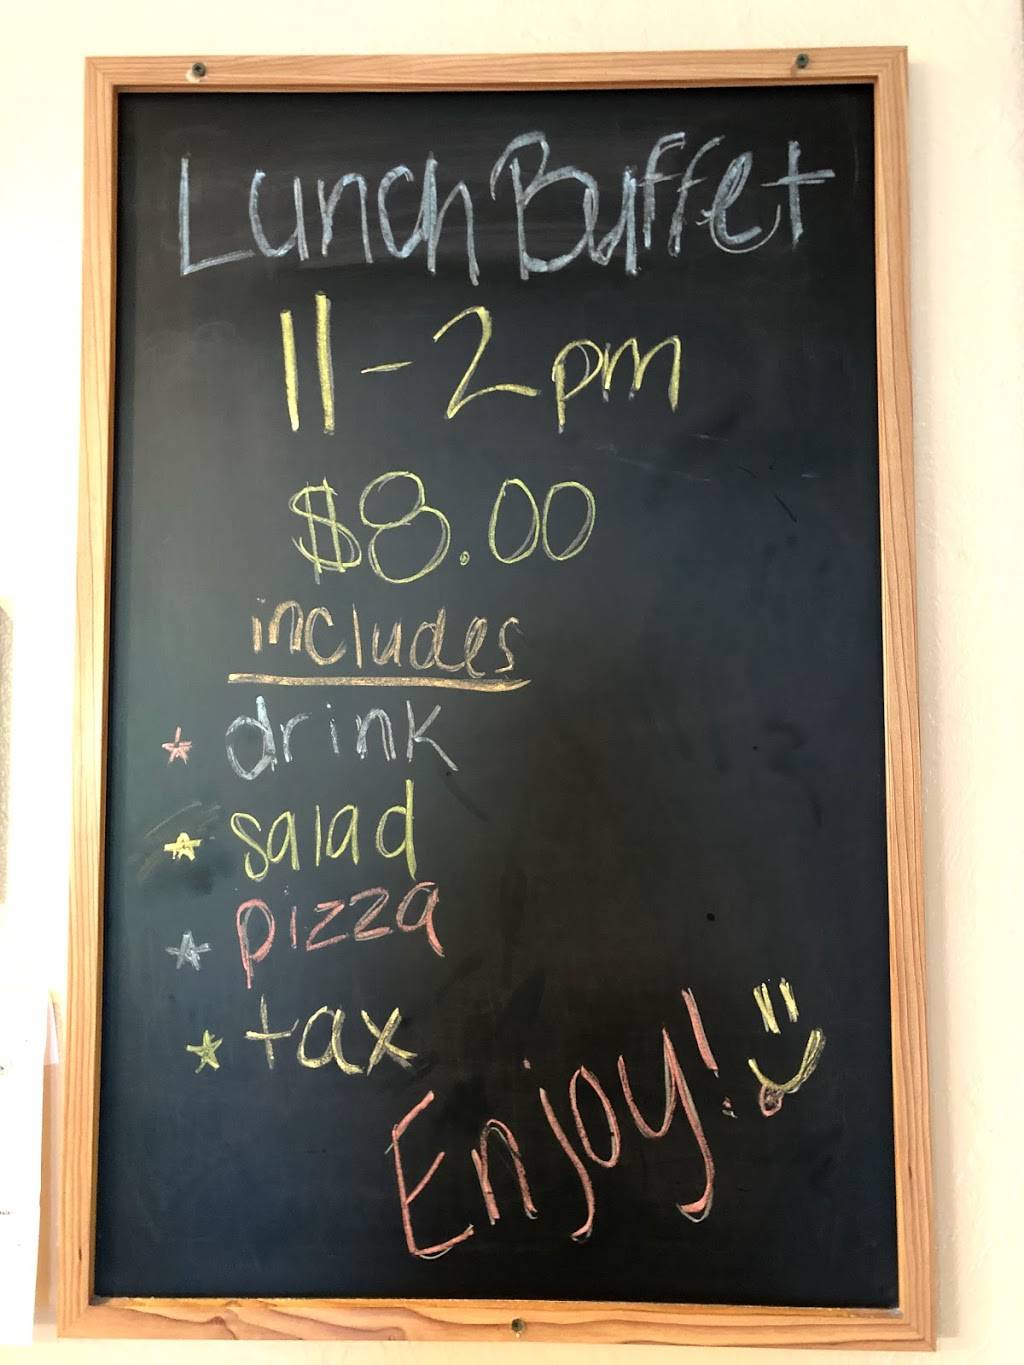 Lunch Buffet
11 - 2pm
$8.00
includes
drink
salad
pizza
tax
Enjoy!